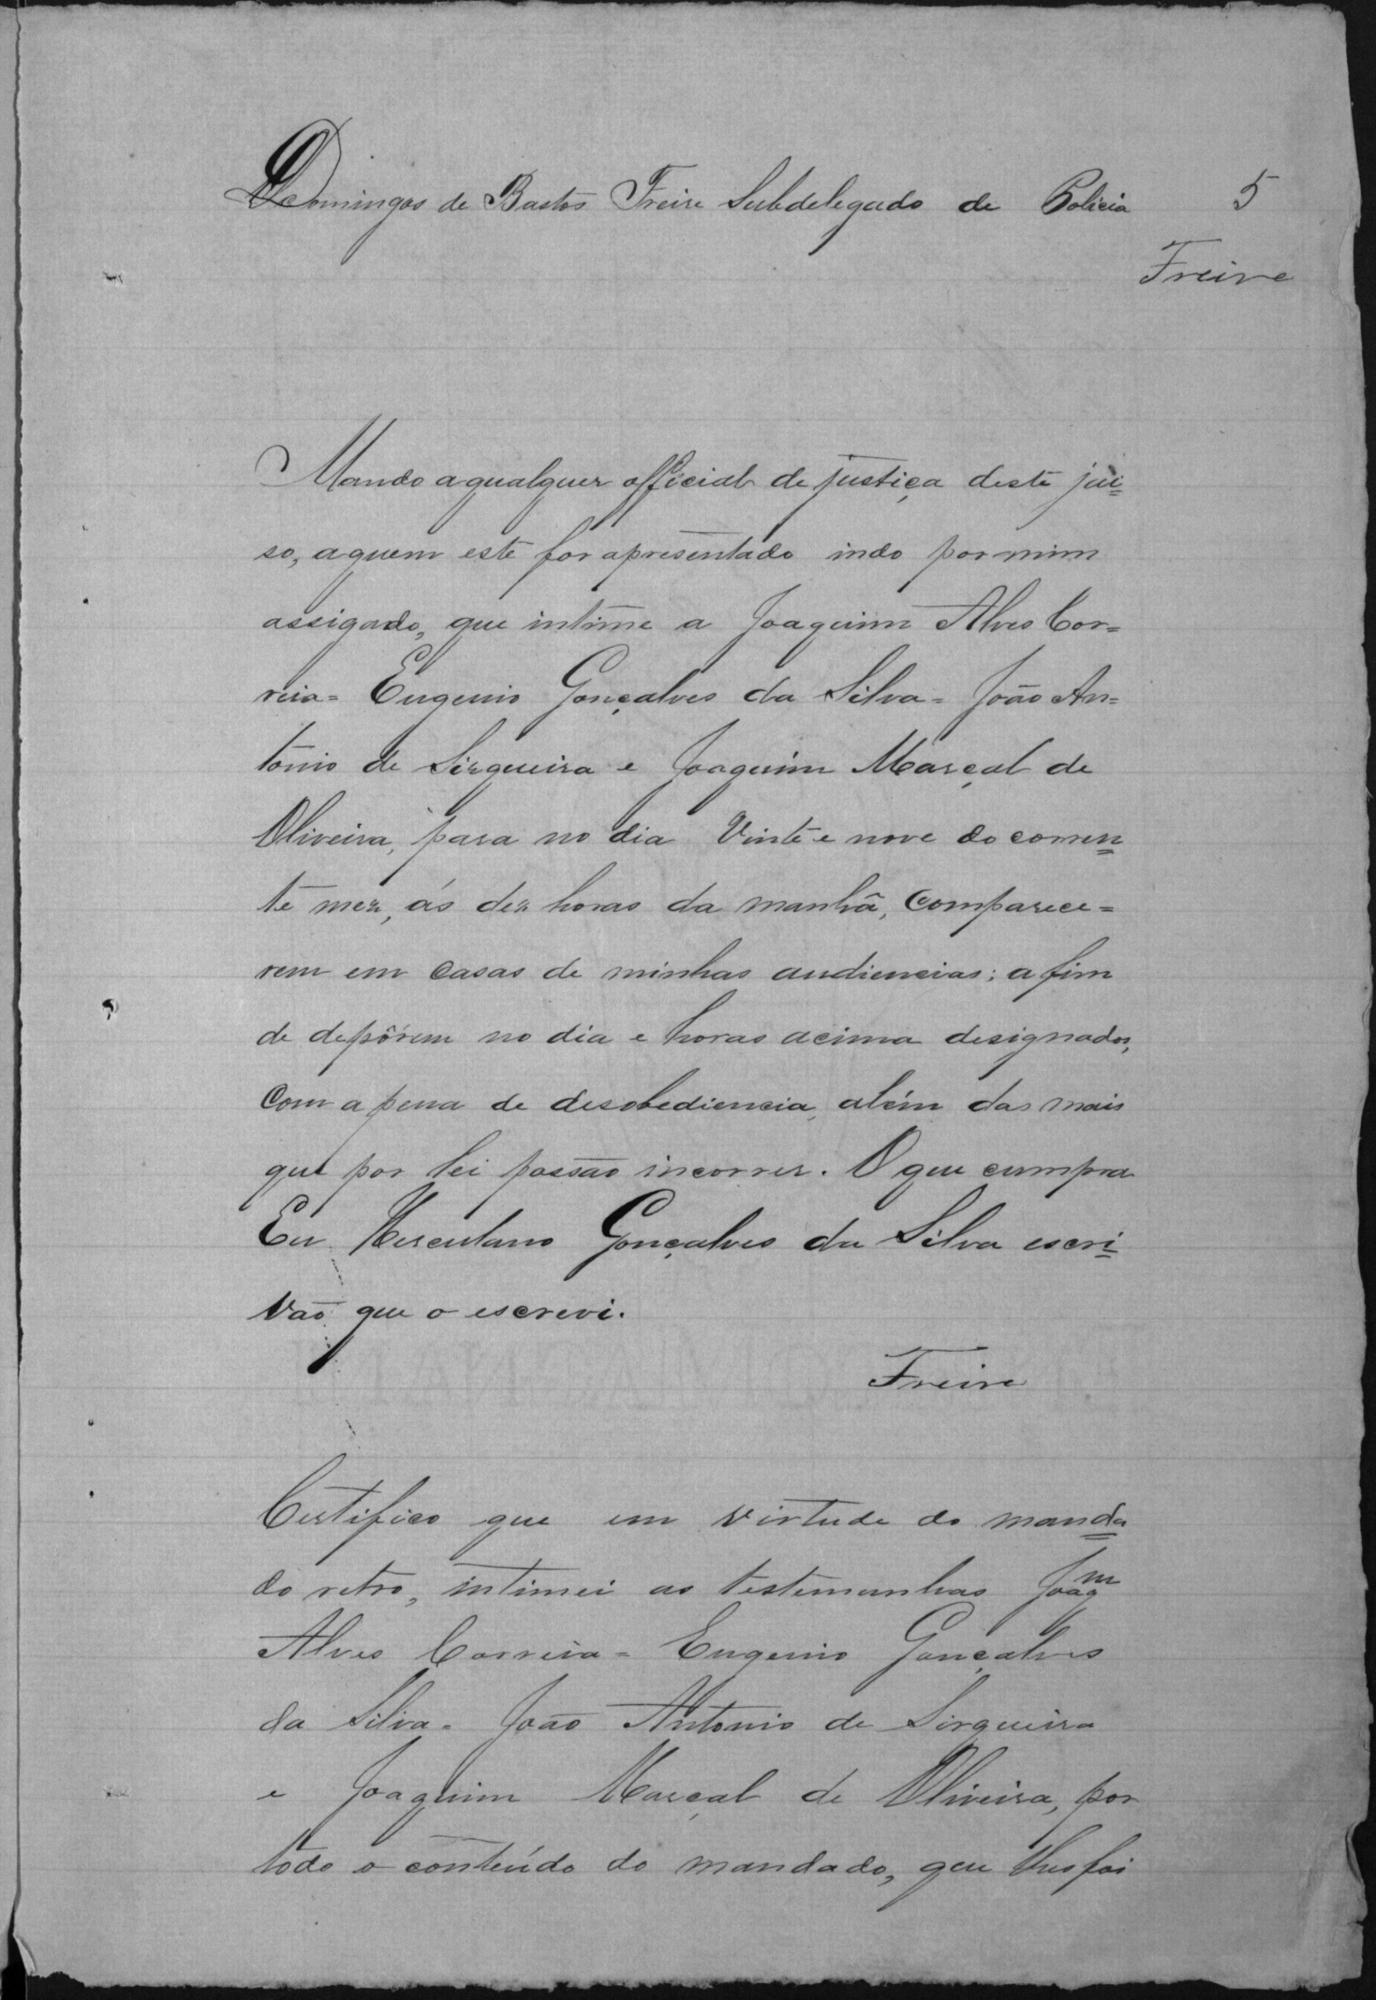 Domingos de Bastos Freire Subdelegado de Policia
5
Freire
Mando a qualquer official de justiça deste jui=
so, a quem este for apresentado indo por mim
assigado, que intime a Joaquim Alves Cor=
reia = Eugenio Gonçalves da Silva = João An=
tonio de Sirqueira e Joaquim Marçal de
Oliveira, para no dia Vinte e nove do corren=
te mez, ás dez horas da manhã, comparece=
rem em casas de minhas audiencias; a fim
de depôrem no dia e horas acima designados,
com a pena de desobediencia, além das mais
que por lei possão incorrer. O que cumpra
Eu Herculano Gonçalves da Silva escri=
vão que o escrevi.
Freire
Certifico que em virtude do manda=
do retro, intimei as testemunhas Joaqm
Alves Correia = Eugenio Gonçalves
da Silva = João Antonio de Sirqueira
e Joaquim Marçal de Oliveira, por
todo o conteúdo do mandado, que lhes foi